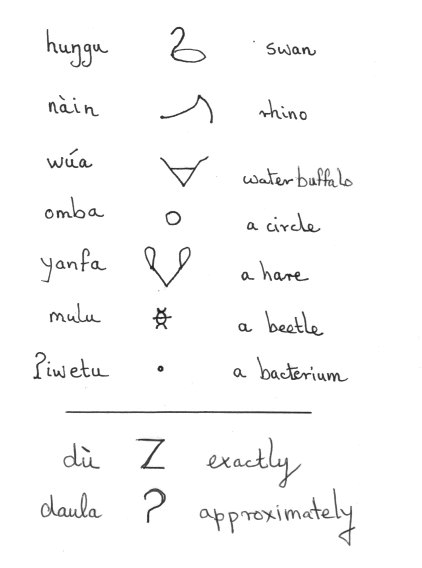 huŋgu swan
nàin rhino
wúa waterbuffalo
omba a circle
yanfa a hare
mulu a beetle
ʔiwetu a bacterium
dù Z exactly
daula ? approximately